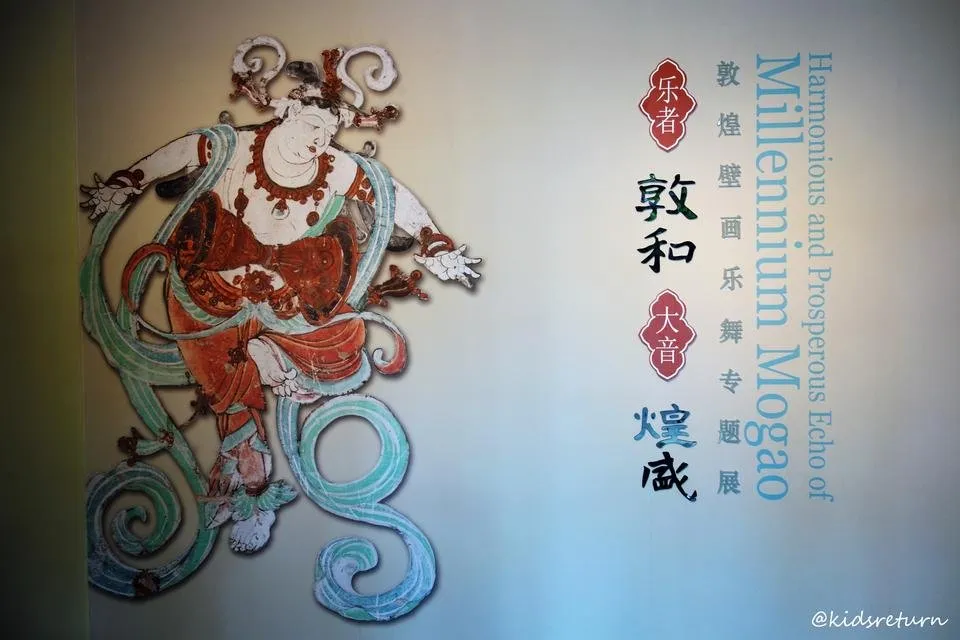 乐者
敦和
大音
煌盛
敦煌壁画乐舞专题展
Harmonious and Prosperous Echo of
Millennium Mogao
@kidsreturn